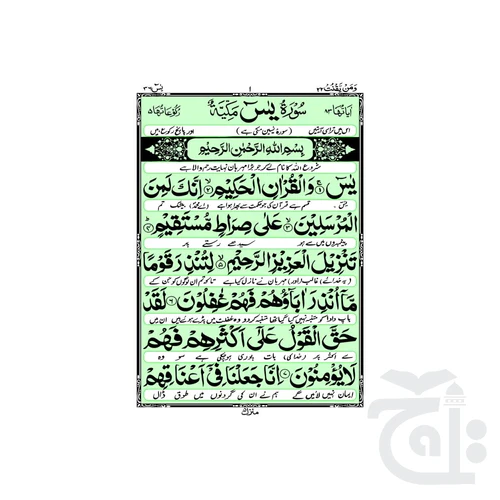 وَمَنْ يَقْنُتْ ٢٢ ١ يٰسٓ ٣٦
اٰيَاتُهَا ٨٣ سُوْرَةُ يٰسٓ مَكِّيَّةٌ رُكُوْعَاتُهَا ٥
اس میں تراسی آیتیں (سورۂ یٰسین مکی ہے) اور پانچ رکوع ہیں
بِسْمِ اللّٰهِ الرَّحْمٰنِ الرَّحِيْمِ
شروع اللہ کا نام لے کر جو بڑا مہربان نہایت رحم والا ہے
يٰسٓ ۚ‏ ١ وَالْقُرْاٰنِ الْحَكِيْمِ ٢ اِنَّكَ لَمِنَ
قسم ہے قرآن کی جو حکمت سے بھرا ہوا ہے بیشک تم
الْمُرْسَلِيْنَ ٣ عَلٰى صِرَاطٍ مُّسْتَقِيْمٍ ٤
پیغمبروں میں سے ہو سیدھے رستے پر
تَنْزِيْلَ الْعَزِيْزِ الرَّحِيْمِ ٥ لِتُنْذِرَ قَوْمًا
مہربان نے نازل کیا ہے تاکہ تم ان لوگوں کو جن کے
مَّاۤ اُنْذِرَ اٰبَآؤُهُمْ فَهُمْ غٰفِلُوْنَ ٦ لَقَدْ
باپ دادا کو متنبہ نہیں کیا گیا تھا متنبہ کر دو وہ غفلت میں پڑے ہوئے ہیں ان میں
حَقَّ الْقَوْلُ عَلٰۤى اَكْثَرِهِمْ فَهُمْ
سے اکثر پر بات پوری ہو چکی ہے سو وہ
لَا يُؤْمِنُوْنَ ٧ اِنَّا جَعَلْنَا فِيْۤ اَعْنَاقِهِمْ
ایمان نہیں لائیں گے ہم نے ان کی گردنوں میں طوق ڈال
منزل